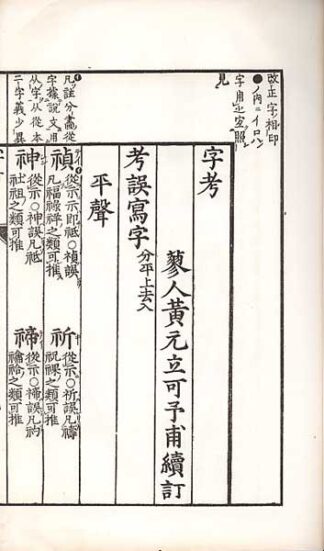 改正字相印
●ノ内ニイロハ
見
字考
蓼人黃元立可予甫續訂
考誤寫字 分平上去入
平聲
凡註分畫從
字據說文用
从字从從本
二字義少異
禎
從示示即祗○禎誤
凡福祿祥之類可推
祈
從示○祈誤凡禱
祝祼之類可推
神
從示○神誤凡祗
社祖之類可推
禘
從示○禘誤凡礿
禴祫之類可推